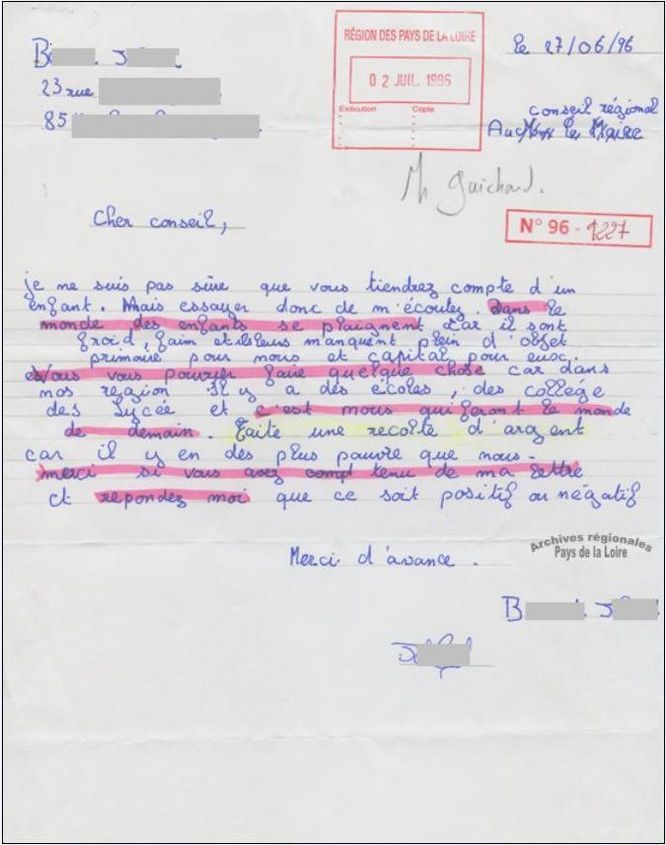 B J
23 rue
85
RÉGION DES PAYS DE LA LOIRE
02 JUIL. 1996
Exécution Copie
le 27/06/96
conseil régional
Au le Maire
M Guichard.
N° 96 - 1227
Cher conseil,
je ne suis pas sûre que vous tiendrez compte d'un
enfant. Mais essayer donc de m'écoutez. Dans le
monde des enfants se plaignent car il sont
froid, faim et ailleurs manquent plein d'objet
primaire pour nous et capital pour eux.
Vous vous pouvrier faire quelque chose car dans
nos region il y a des écoles, des collége
des Lycée et c'est nous qui feront le monde
de demain. Faite une recolte d'argent
car il y en des plus pauvre que nous.
merci si vous avez compt tenu de ma lettre
et repondez moi que ce soit positif ou négatif
Merci d'avance.
Archives régionales
Pays de la Loire
B J